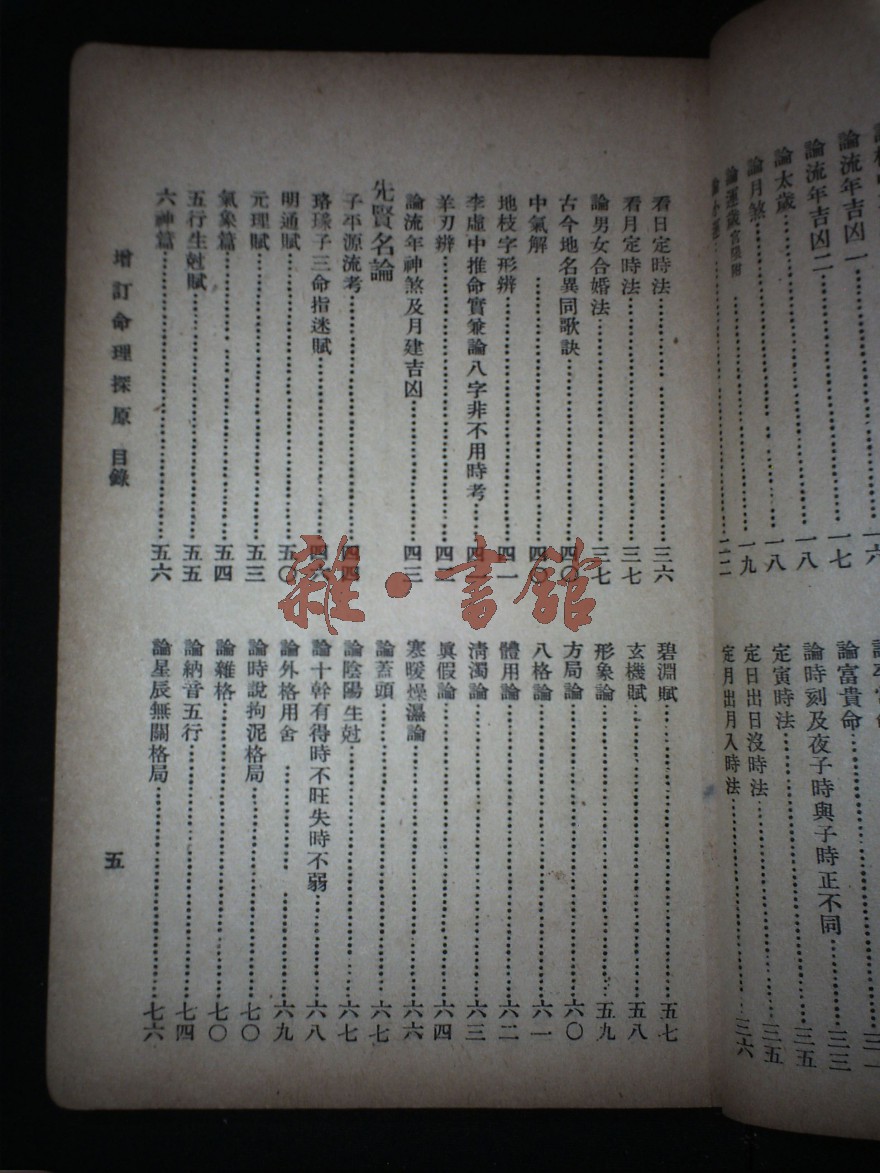 論流年吉凶一
論流年吉凶二……一八
論太歲……一八
論月煞……一九
論富貴命……三三
論時刻及夜子時與子時正不同……三五
定寅時法……三五
定日出日沒時法
定月出月入時法……三六
看日定時法……三六
看月定時法……三七
論男女合婚法……三七
古今地名異同歌訣……四〇
中氣解……四〇
地枝字形辨……四一
李虛中推命實兼論八字非不用時考……四一
羊刃辨……四二
論流年神煞及月建吉凶……四三
先賢名論
子平源流考……四四
珞琭子三命指迷賦……四六
明通賦……五〇
元理賦……五三
氣象篇……五四
五行生尅賦……五五
六神篇……五六
碧淵賦……五七
玄機賦……五八
形象論……五九
方局論……六〇
八格論……六一
體用論……六二
清濁論……六三
眞假論……六四
寒暖燥濕論……六六
論蓋頭……六七
論陰陽生尅……六七
論十幹有得時不旺失時不弱……六八
論外格用舍……六九
論時說拘泥格局……七〇
論雜格……七〇
論納音五行……七四
論星辰無關格局……七六
增訂命理探原 目錄
五
雜·書館